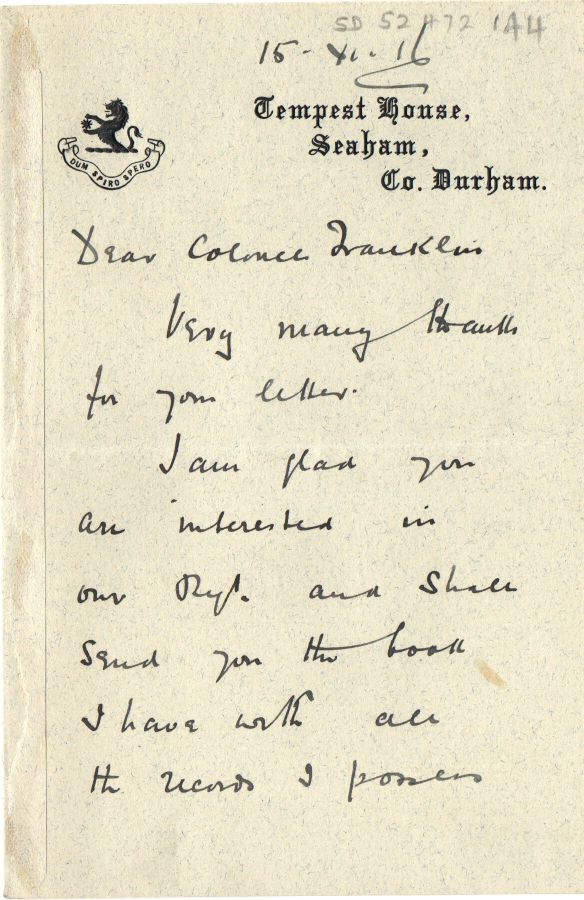 SD 52472 144
15-XI-16
DUM SPIRO SPERO
Tempest House,
Seaham,
Co. Durham.
Dear Colonel Franklin
Very many thanks
for your letter.
I am glad you
are interested in
our Regt. and shall
send you the book
I have with all
the records I possess